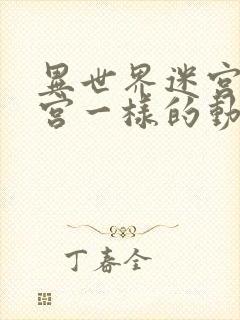 異世界迷宮
宮一樣的動
丁春全